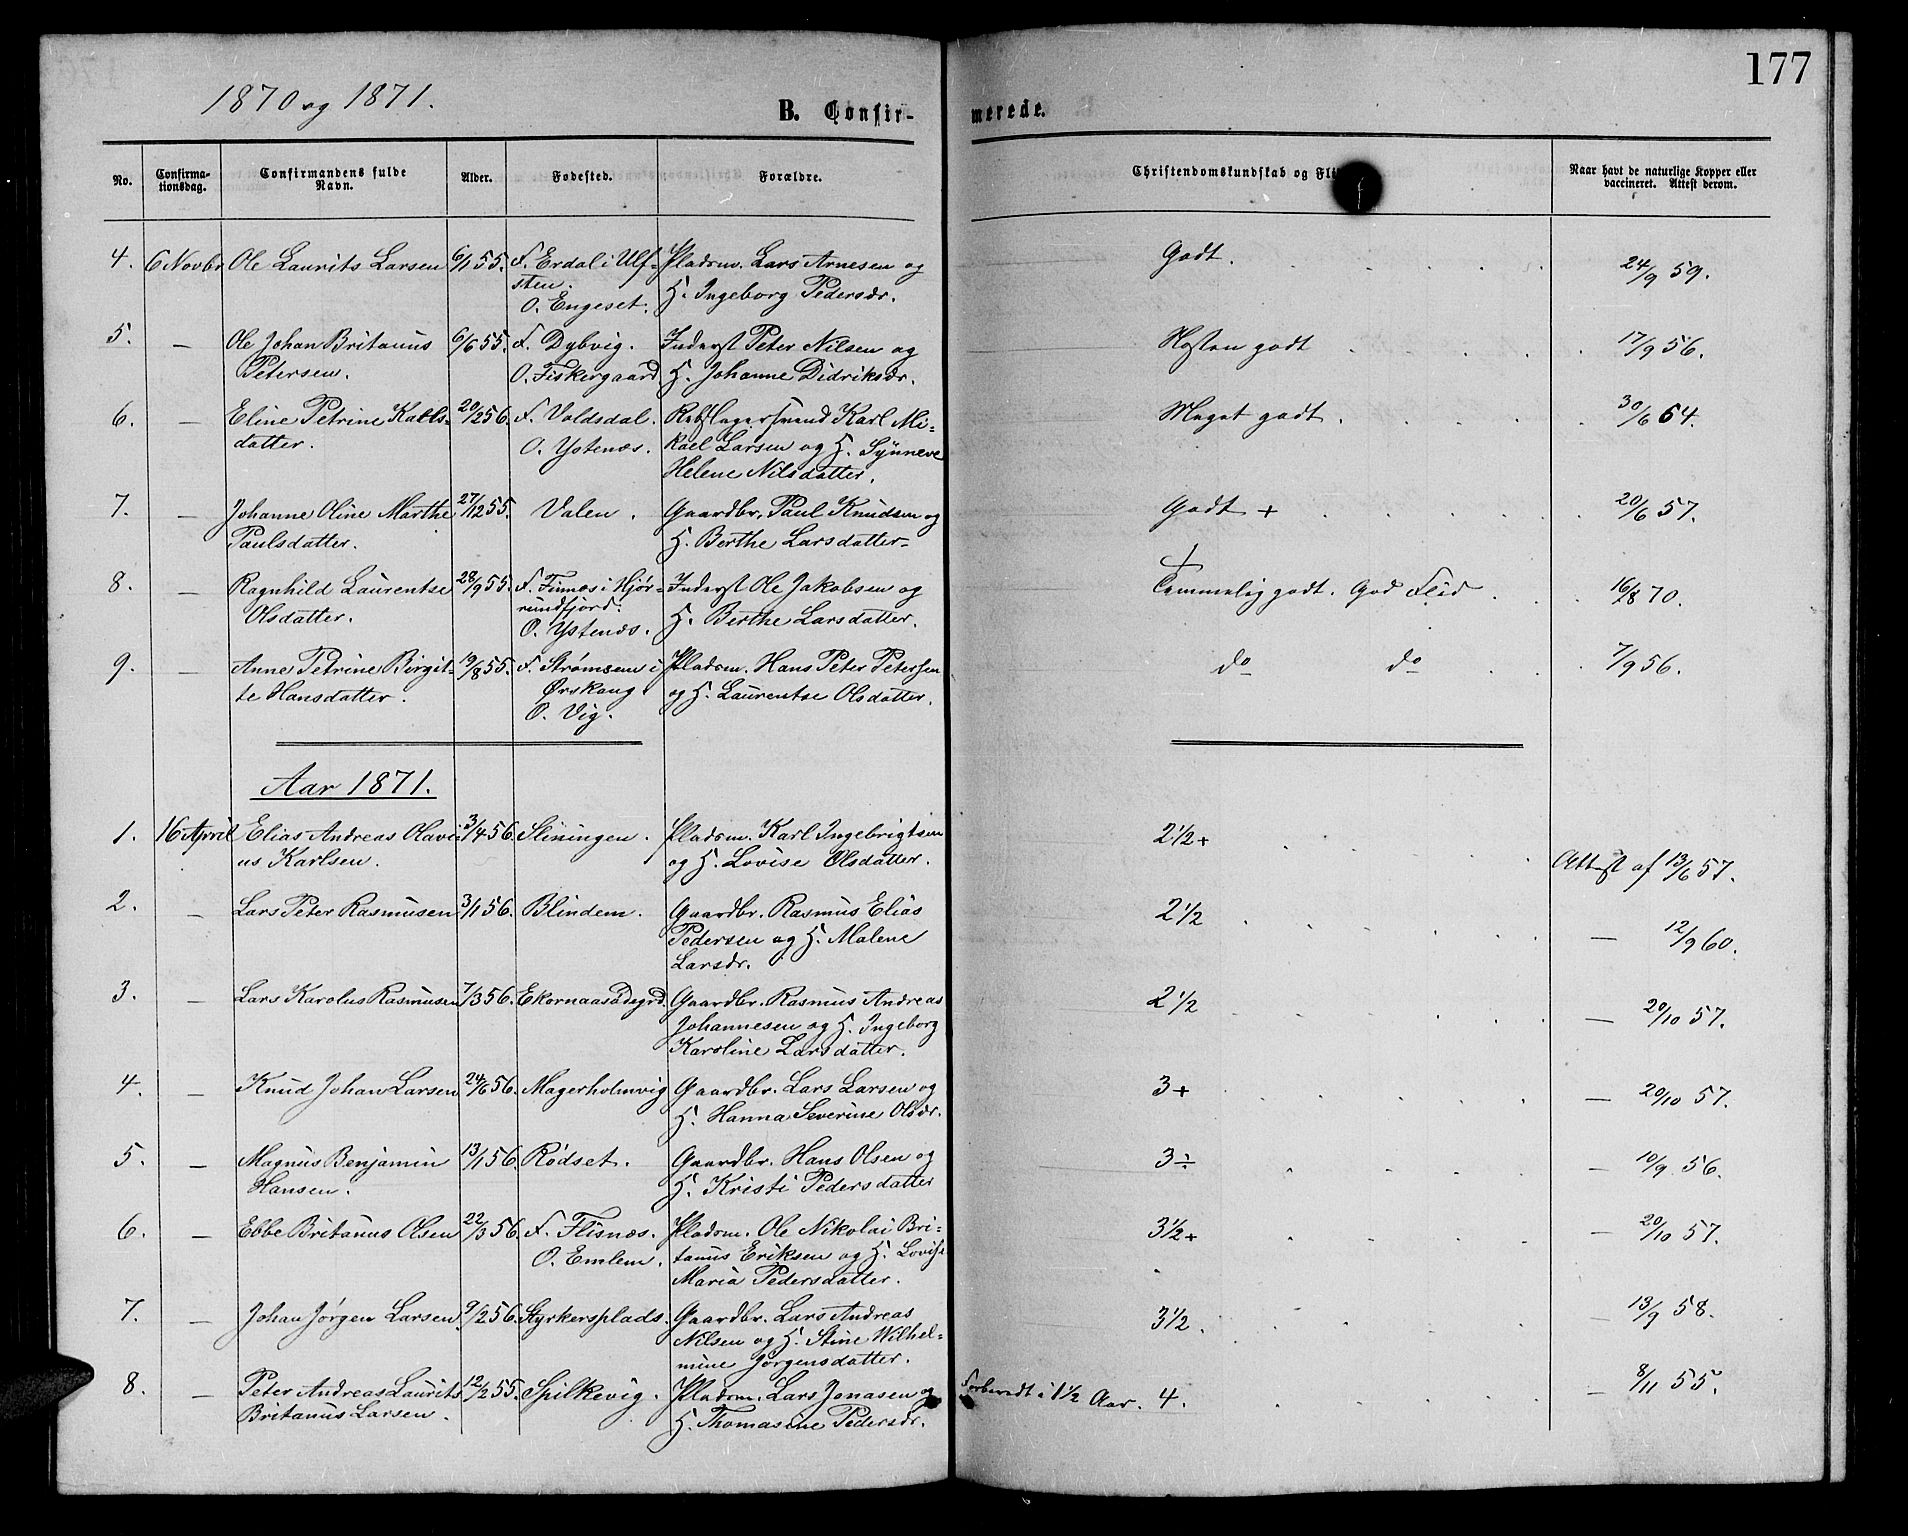 177
1870 og 1871.
B. Confir-
merede.
No.
Confirma-
tionsdag.
Confirmandens fulde
Navn.
Alder.
Fødested.
Forældre.
Christendomskundskab og Fli
Naar havt de naturlige Kopper eller
vaccineret. Attest derom.
4. 6 Novbr Ole Laurits Larsen 6/1 55. F. Erdal i Ulf- Pladsm. Lars Arnesen og Godt. 24/9 59.
sten. H. Ingeborg Pedersdr.
O. Engeset.
5. — Ole Johan Britanus 6/6 55. F. Dybvig. Inderst Peter Nilsen og Næsten godt 17/9 56.
Petersen. O. Fiskergaard H. Johanne Didriksdr.
6. — Eline Petrine Karls- 20/2 56. F. Valdsdal. Rebslagersvend Karl Mi- Meget godt. 30/6 64.
datter. O. Ystenæs. kael Larsen og H. Synneve
Helene Nilsdatter.
7. — Johanne Oline Marthe 27/12 55. Valen. Gaardbr. Paul Knudsen og Godt + 20/6 57.
Paulsdatter. H. Berthe Larsdatter
8. — Ragnhild Laurentse 28/9 55. F. Finnes i Hjør- Inderst Ole Jakobsen og Temmelig godt. God Flid 16/8 70.
Olsdatter. rundfjord. H. Berthe Larsdatter.
O. Ystenæs.
9. — Anne Petrine Birgit- 19/8 55. F. Strømsem i Pladsm. Hans Peter Petersen do do 7/9 56.
te Hansdatter. Ørskoug og H. Laurentse Olsdatter.
O. Vig.
Aar 1871.
1. 16 April Elias Andreas Olavi- 3/4 56. Sliningen. Pladsm. Karl Ingebrigtsen 2 1/2 +
us Karlsen. og H. Lovise Olsdatter. Attest af 13/6 57.
2. — Lars Peter Rasmusen 3/1 56. Blindem. Gaardbr. Rasmus Elias 2 1/2
Pedersen og H. Malene — 12/9 60.
Larsdr.
3. — Lars Karolus Rasmusen 7/3 56. Ekornaasødegrd. Gaardbr. Rasmus Andreas 2 1/2
Johannesen og H. Ingeborg — 20/10 57.
Karoline Larsdatter.
4. — Knud Johan Larsen 24/6 56. Magerholmvig Gaardbr. Lars Larsen og 3 + — 20/10 57.
H. Hanna Severine Olsdr.
5. — Magnus Benjamin 13/1 56. Rødset. Gaardbr. Hans Olsen og 3 ÷ — 10/9 56.
Hansen. H. Kristi Pedersdatter
6. — Ebbe Britanus Olsen 22/3 56 F. Flisnæs. Pladsm. Ole Nikolai Bri- 3 1/2 + — 20/10 57.
O. Emlem. tanus Eriksen og H. Lovise
Maria Pedersdatter.
7. — Johan Jørgen Larsen 9/2 56. Styrkersplads. Gaardbr. Lars Andreas 3 1/2. — 13/9 58.
Nilsen og H. Stine Wilhel-
mine Jørgensdatter.
8. — Peter Andreas Laurits 12/2 55. Spilkevig. Pladsm. Lars Jonasen og Forberedt i 1 1/2 Aar. 4. — 8/11 55.
Britanus Larsen. H. Thomasine Pedersdr.